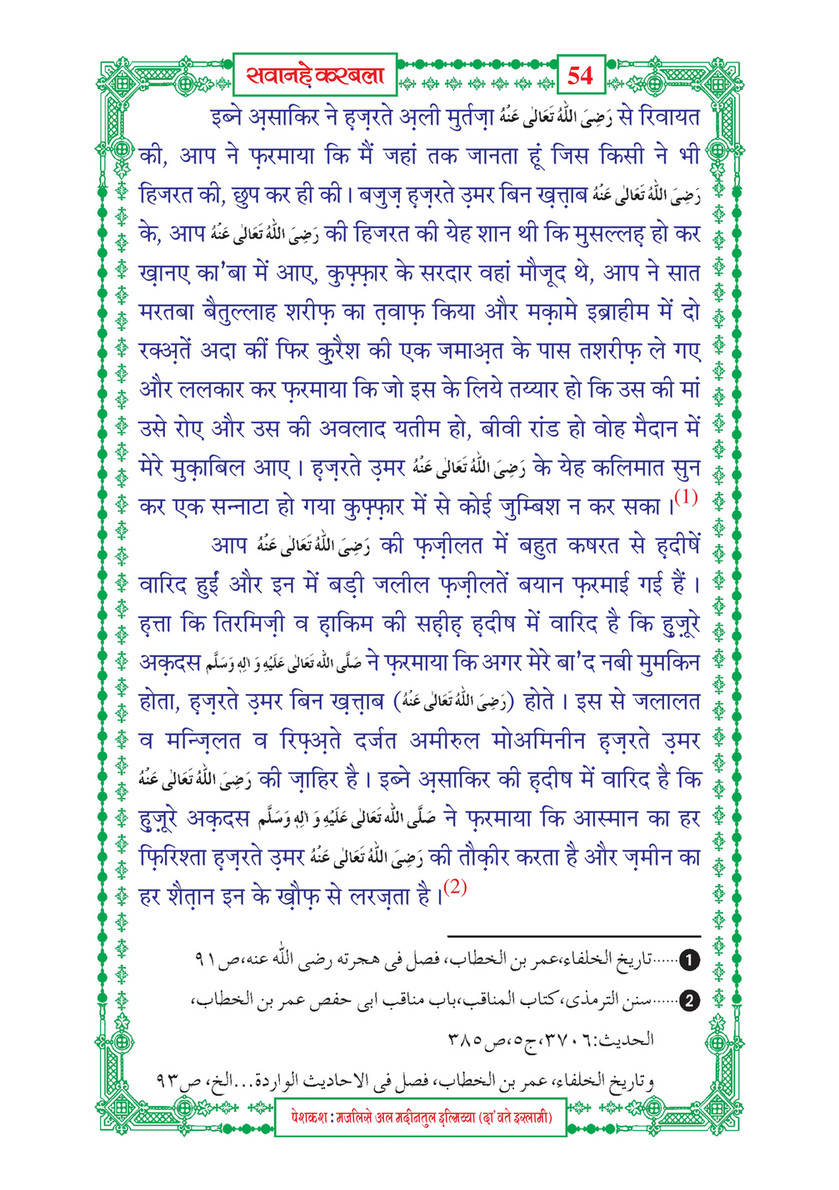 सवानहे करबला
54
इब्ने अ़साकिर ने ह़ज़रते अ़ली मुर्तज़ा رَضِیَ اللّٰهُ تَعَالٰی عَنْهُ से रिवायत
की, आप ने फ़रमाया कि मैं जहां तक जानता हूं जिस किसी ने भी
हिजरत की, छुप कर ही की । बजुज़ ह़ज़रते उ़मर बिन ख़त़्त़ाब رَضِیَ اللّٰهُ تَعَالٰی عَنْهُ
के, आप رَضِیَ اللّٰهُ تَعَالٰی عَنْهُ की हिजरत की येह शान थी कि मुसल्लह़ हो कर
ख़ानए का'बा में आए, कुफ़्फ़ार के सरदार वहां मौजूद थे, आप ने सात
मरतबा बैतुल्लाह शरीफ़ का त़वाफ़ किया और मक़ामे इब्राहीम में दो
रक्अ़तें अदा कीं फिर क़ुरैश की एक जमाअ़त के पास तशरीफ़ ले गए
और ललकार कर फ़रमाया कि जो इस के लिये तय्यार हो कि उस की मां
उसे रोए और उस की अवलाद यतीम हो, बीवी रांड हो वोह मैदान में
मेरे मुक़ाबिल आए । ह़ज़रते उ़मर رَضِیَ اللّٰهُ تَعَالٰی عَنْهُ के येह कलिमात सुन
कर एक सन्नाटा हो गया कुफ़्फ़ार में से कोई जुम्बिश न कर सका ।(1)
आप رَضِیَ اللّٰهُ تَعَالٰی عَنْهُ की फ़ज़ीलत में बहुत कषरत से ह़दीषें
वारिद हुईं और इन में बड़ी जलील फ़ज़ीलतें बयान फ़रमाई गई हैं ।
ह़त्ता कि तिरमिज़ी व ह़ाकिम की सह़ीह़ ह़दीष में वारिद है कि हुज़ूरे
अक़दस صَلَّی اللّٰه تَعَالٰی عَلَیْهِ وَ اٰلِهٖ وَسَلَّم ने फ़रमाया कि अगर मेरे बा'द नबी मुमकिन
होता, ह़ज़रते उ़मर बिन ख़त़्त़ाब (رَضِیَ اللّٰهُ تَعَالٰی عَنْهُ) होते । इस से जलालत
व मन्ज़िलत व रिफ़्अ़ते दर्जत अमीरुल मोअमिनीन ह़ज़रते उ़मर
رَضِیَ اللّٰهُ تَعَالٰی عَنْهُ की ज़ाहिर है । इब्ने अ़साकिर की ह़दीष में वारिद है कि
हुज़ूरे अक़दस صَلَّی اللّٰه تَعَالٰی عَلَیْهِ وَ اٰلِهٖ وَسَلَّم ने फ़रमाया कि आस्मान का हर
फ़िरिश्ता ह़ज़रते उ़मर رَضِیَ اللّٰهُ تَعَالٰی عَنْهُ की तौक़ीर करता है और ज़मीन का
हर शैत़ान इन के ख़ौफ़ से लरज़ता है ।(2)
❶......تاریخ الخلفاء،عمر بن الخطاب، فصل فی هجرته رضی اللّٰه عنه،ص۹۱
❷......سنن الترمذی،کتاب المناقب،باب مناقب ابی حفص عمر بن الخطاب،
الحدیث:۳۷۰۶،ج۵،ص۳۸۵
وتاریخ الخلفاء، عمر بن الخطاب، فصل فی الاحادیث الواردة...الخ، ص۹۳
पेशकश : मजलिसे अल मदीनतुल इल्मिय्या (दा'वते इस्लामी)